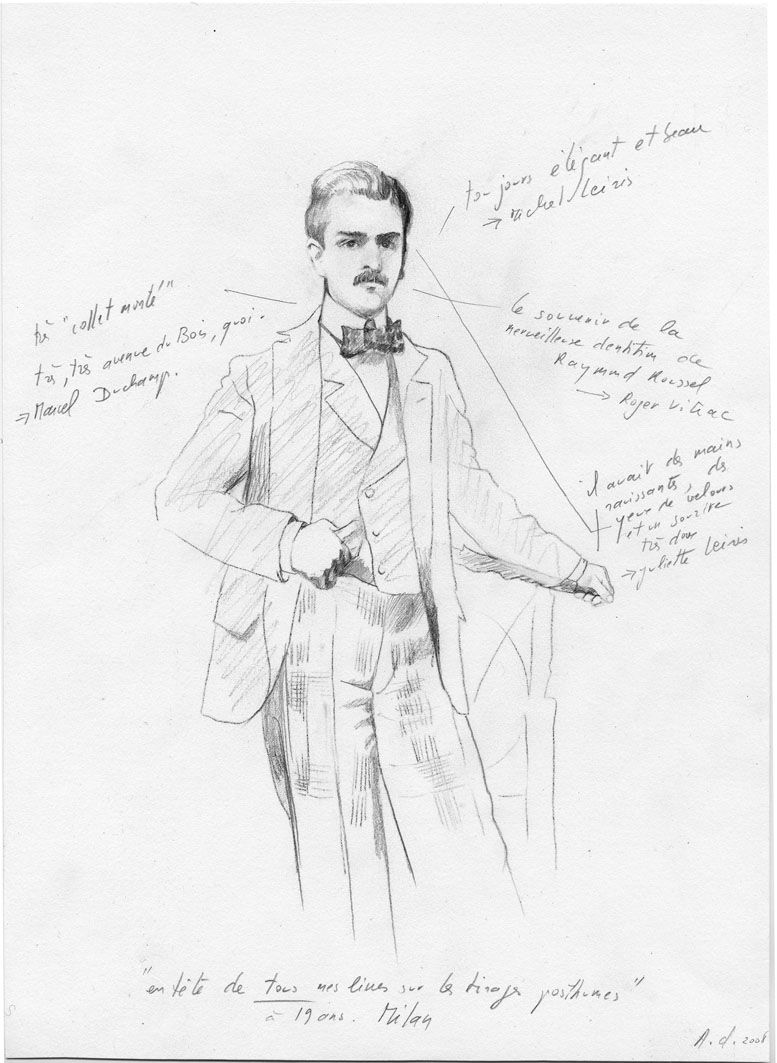 toujours élégant et beau
→ Michel Leiris
très "collet monté"
très, très avenue du Bois, quoi.
→ Marcel Duchamp.
le souvenir de la
merveilleuse dentition de
Raymond Roussel
→ Roger Vitrac
il avait des mains
ravissantes, des
yeux de velours
et un sourire
très doux
→ Juliette Leiris
"en tête de tous mes livres sur les tirages posthumes"
à 19 ans. Milan
A. d. 2008